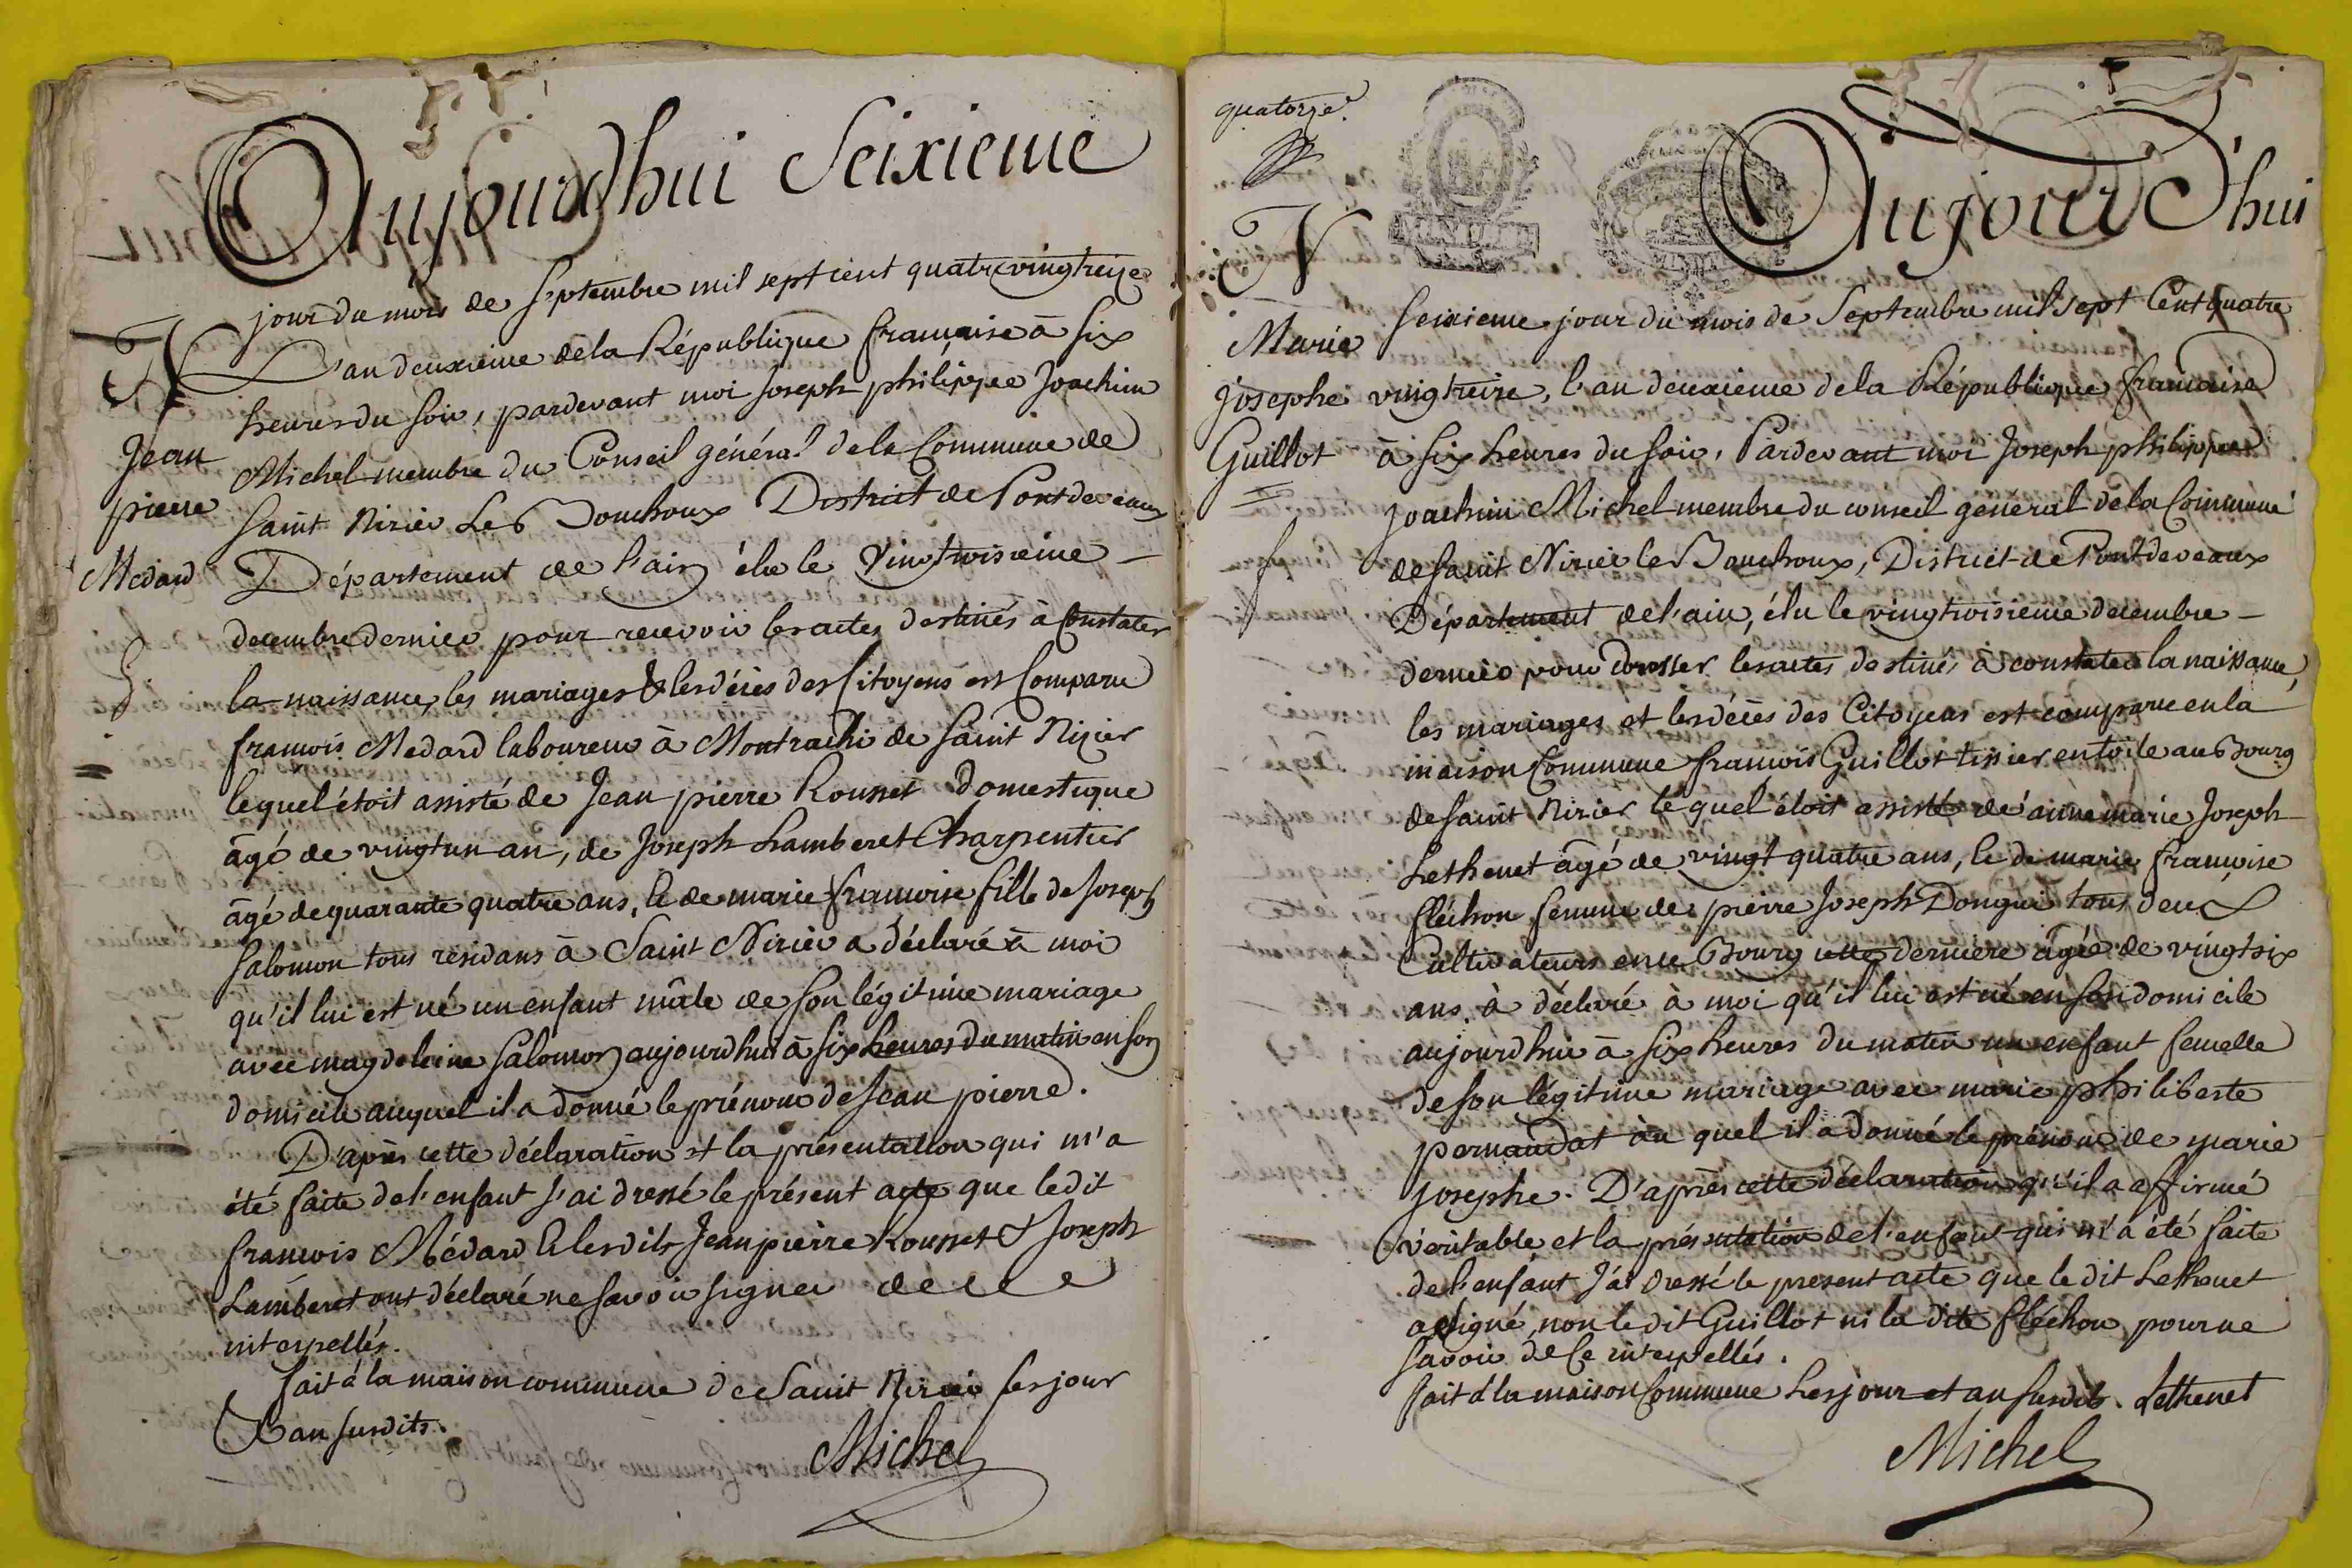 Aujourdhui Seixieme
jour du mois de Septembre mil sept cent quatrevingtreize
L'an deuxieme de la République française à six
heures du soir, pardevant moi joseph philippe Joachim
Michel membre du Conseil général de la Commune de
Saint Nizier Le Bouchoux District de Pontdevaux
Département de l'ain élu le vingtroisieme –
decembre dernier pour recevoir les actes destinés à Constater
la naissance, les mariages & les décès des Citoyens est Comparu
francois Medard laboureur à Montrachi de Saint Nizier
lequel étoit assisté de Jean pierre Rousset Domestique
âgé de vingtun an, de Joseph Lamberet Charpentier
âgé de quarante quatre ans, & de marie francoise fille de Joseph
Salomon tous residans à Saint Nizier a déclaré à moi
qu'il lui est né un enfant mâle de son légitime mariage
avec magdeleine Salomon aujourdhui à six heures du matin en son
domicile auquel il a donné le prénom de Jean pierre.
D'après cette déclaration et la présentation qui m'a
été faite de l'enfant J'ai dressé le présent acte que ledit
francois Médard & lesdits Jean pierre Rousset & Joseph
Lamberet ont déclaré ne savoir signer de ce
interpellés.
fait à la maison commune de Saint Nizier les jour
& an susdits.
Michel
N
Jean
pierre
Medard
quatorze.
Aujourd'hui
N
Marie
josephe
Guillot
Seixieme jour du mois de Septembre mil sept Cent quatre
vingtreize, l'an deuxieme de la République francaise
à six heures du soir, Pardevant moi Joseph philippe
Joachim Michel membre du conseil général de la Commune
de saint Nizier le Bouchoux, District de Pontdevaux
Département de l'ain, élu le vingtroisieme decembre –
dernier pour dresser les actes destinés à constater la naissance,
les mariages et les décès des Citoyens est comparu en la
maison Commune francois Guillot tissier en toile au Bourg
de saint Nizier lequel étoit assisté de anne marie Joseph
Lethenet âgé de vingt quatre ans, & de marie francoise
fléchon femme de pierre Joseph Dongui tous deux
Cultivateurs en ce Bourg cette derniere âgée de vingtsix
ans, à déclaré à moi qu'il lui est né en son domicile
aujourdhui à six heures du matin un enfant femelle
de son légitime mariage avec marie philiberte
pernaudat au quel il a donné le prénom de marie
josephe. D'après cette déclaration qu'il a affirmé
véritable et la présentation de l'enfant qui m'a été faite
de l'enfant J'ai dressé le present acte que le dit Lethenet
a signé, non le dit Guillot ni la dite fléchon pour ne
savoir de ce interpellés.
fait à la maison Commune les jour et an susdits. Lethenet
Michel